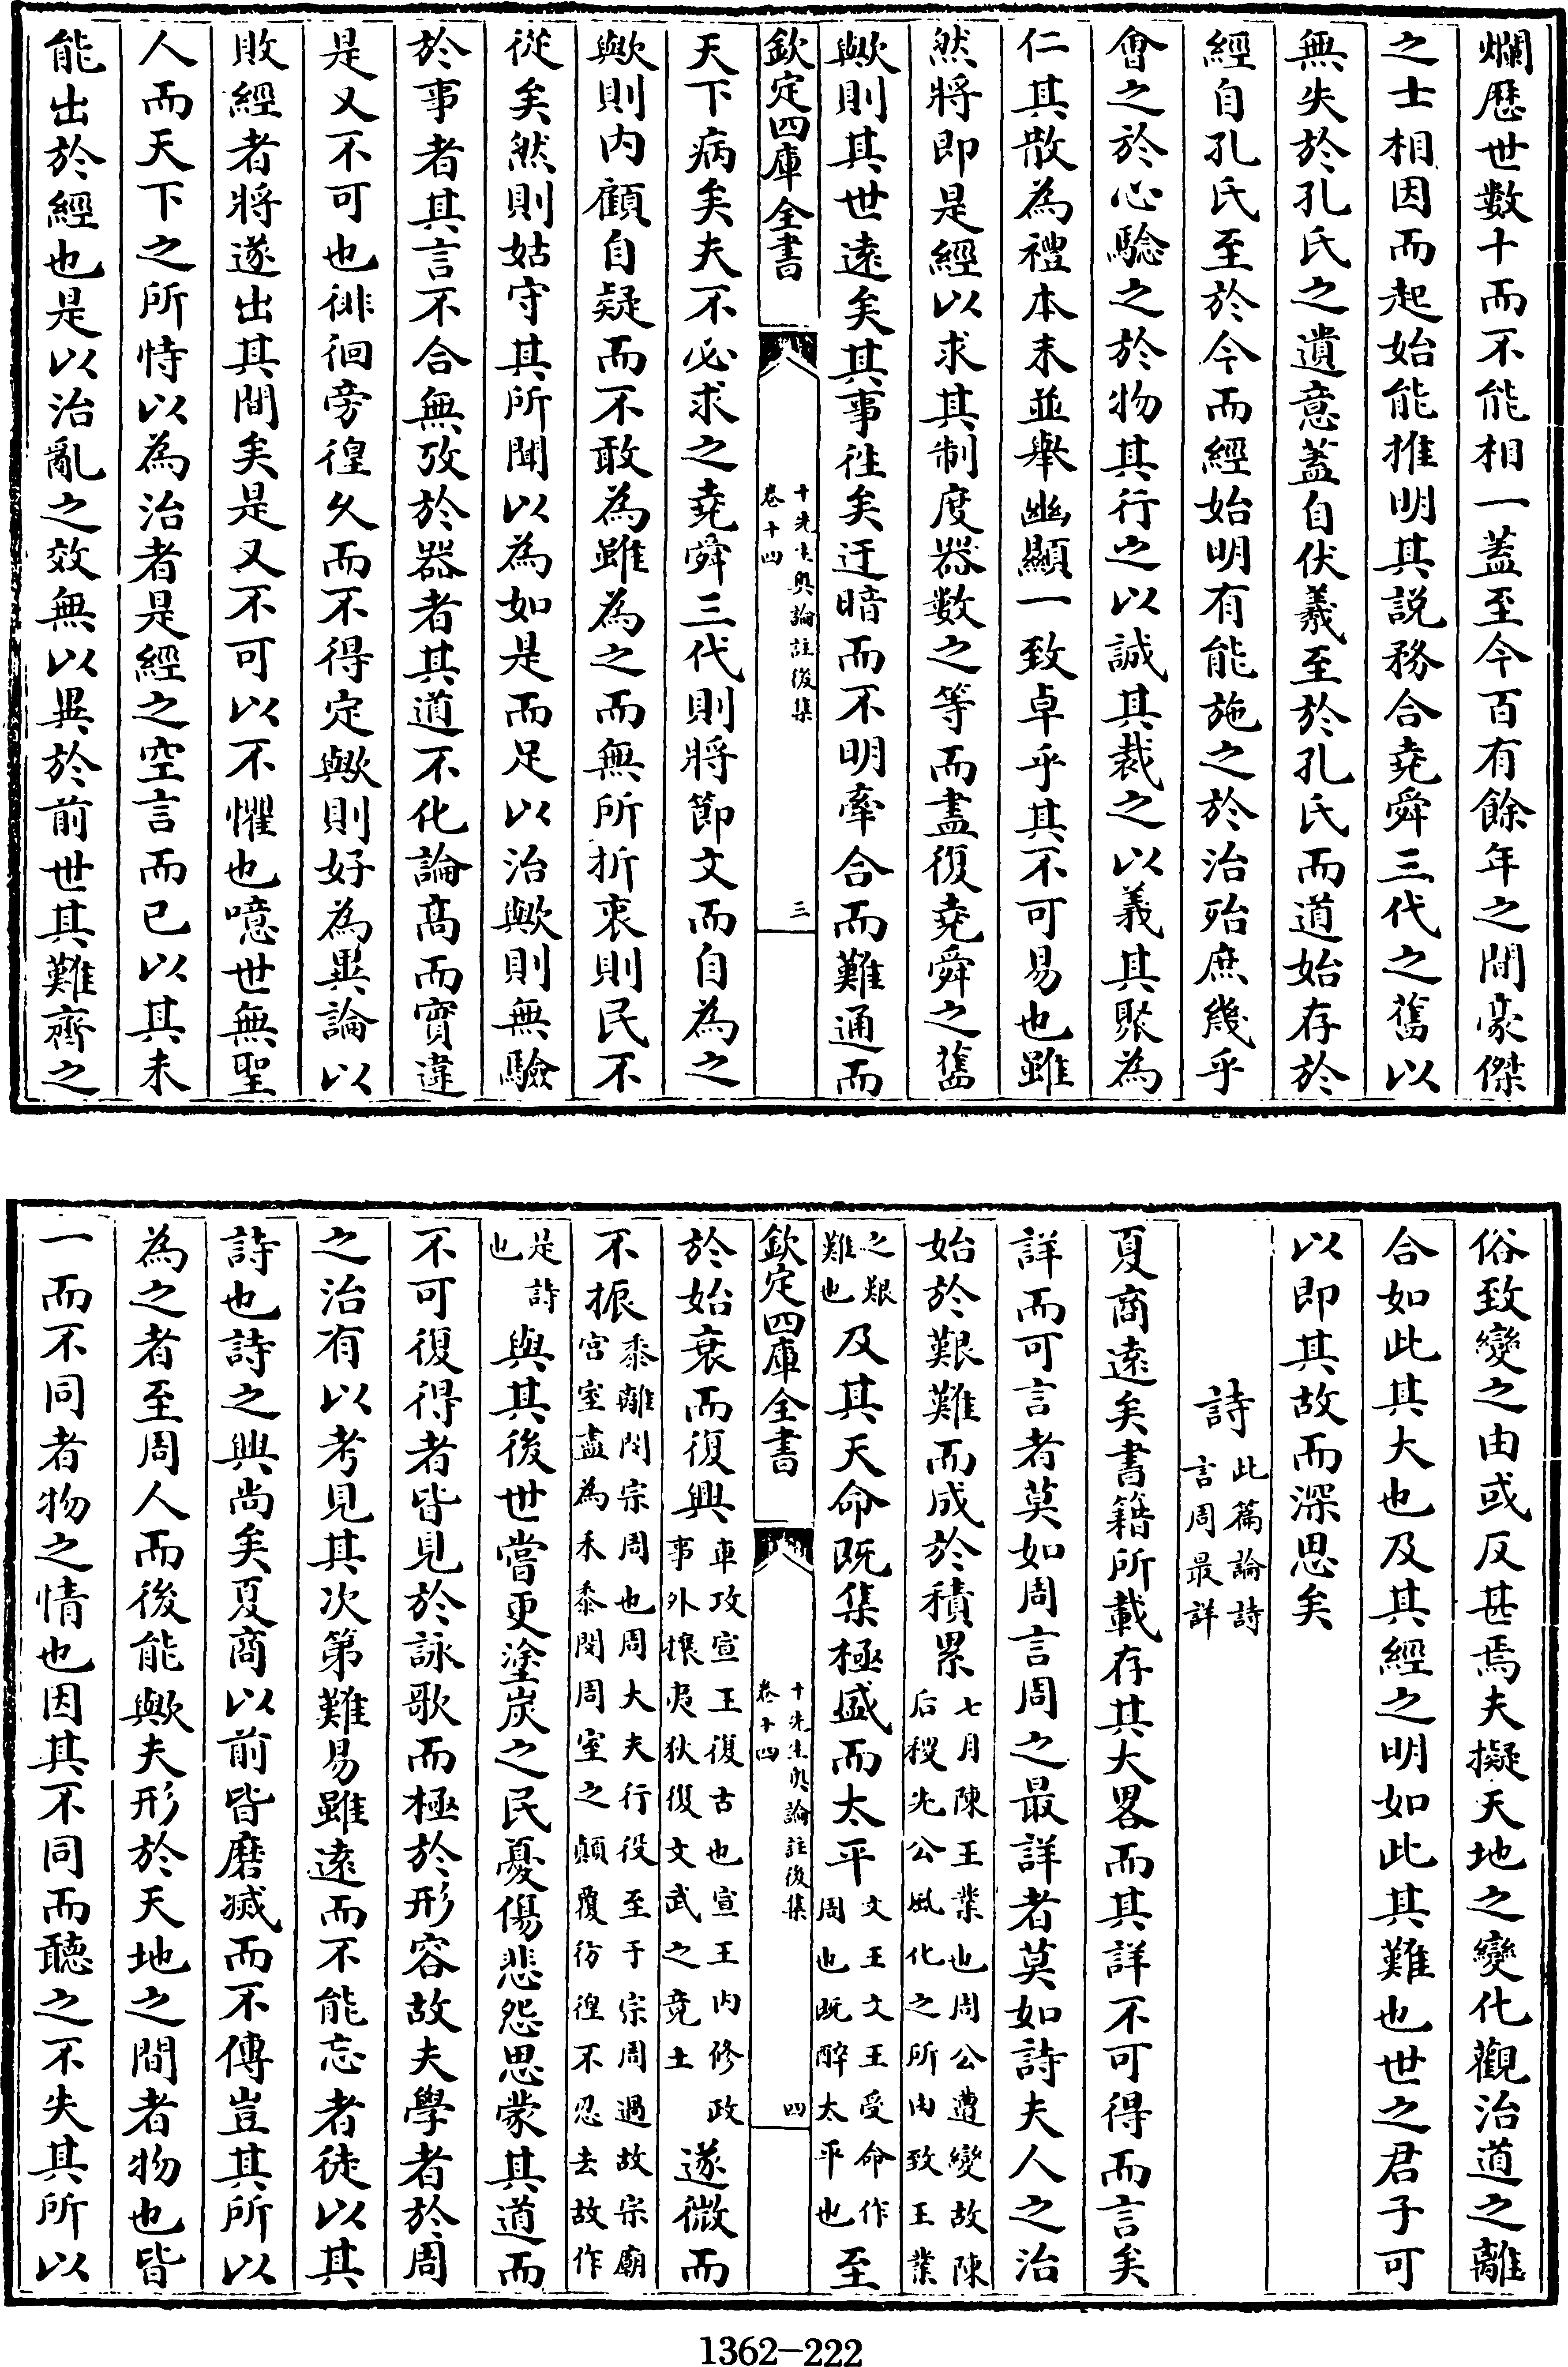 爛歷世數十而不能相一蓋至今百有餘年之間豪傑
之士相因而起始能推明其説務合堯舜三代之舊以
無失於孔氏之遺意蓋自伏羲至於孔氏而道始存於
經自孔氏至於今而經始明有能施之於治殆庶幾乎
會之於心驗之於物其行之以誠其裁之以義其聚為
仁其散為禮本末並舉幽顯一致卓乎其不可易也雖
然將即是經以求其制度器數之等而盡復堯舜之舊
歟則其世遠矣其事往矣迂暗而不明牽合而難通而
欽定四庫全書
十先生奥論註後集
卷十四
三
天下病矣夫不必求之堯舜三代則將節文而自為之
歟則内顧自疑而不敢為雖為之而無所折衷則民不
從矣然則姑守其所聞以為如是而足以治歟則無驗
於事者其言不合無攷於器者其道不化論髙而實違
是又不可也徘徊旁徨久而不得定歟則好為異論以
敗經者將遂出其間矣是又不可以不懼也噫世無聖
人而天下之所恃以為治者是經之空言而已以其未
能出於經也是以治亂之效無以異於前世其難齊之
俗致變之由或反甚焉夫擬天地之變化觀治道之離
合如此其大也及其經之明如此其難也世之君子可
以即其故而深思矣
詩
此篇論詩
言周最詳
夏商遠矣書籍所載存其大畧而其詳不可得而言矣
詳而可言者莫如周言周之最詳者莫如詩夫人之治
始於艱難而成於積累
七月陳王業也周公遭變故陳
后稷先公風化之所由致王業
之艱
難也
及其天命既集極盛而太平
文王文王受命作
周也既醉太平也
至
欽定四庫全書
十先生奥論註後集
卷十四
四
於始衰而復興
車攻宣王復古也宣王内修政
事外攘夷狄復文武之竟土
遂微而
不振
黍離閔宗周也周大夫行役至于宗周過故宗廟
宫室盡為禾黍閔周室之顛覆彷徨不忍去故作
是詩
也
與其後世嘗更塗炭之民憂傷悲怨思蒙其道而
不可復得者皆見於詠歌而極於形容故夫學者於周
之治有以考見其次第難易雖遠而不能忘者徒以其
詩也詩之興尚矣夏商以前皆磨滅而不傳豈其所以
為之者至周人而後能歟夫形於天地之間者物也皆
一而不同者物之情也因其不同而聽之不失其所以
1362-222